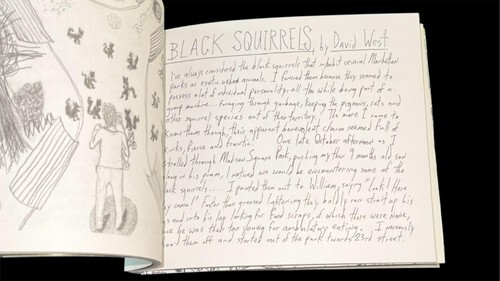 BLACK SQUIRRELS, by David West
I've always considered the black squirrels that inhabit several Manhattan
parks as exotic urban animals. I fancied them because they seemed to
possess a lot of individual personality all the while being part of a
group machine... foraging through garbage, keeping the pigeons, rats and
other squirrel species out of their territory. The more I came to
know them though, their apparent benevolent charm seemed full of
kinks, fierce and frantic. One late October afternoon as I
strolled through Madison Square Park, pushing my then 9 months old son
along in his pram, I noticed we would be encountering some of the
black squirrels.... I pointed them out to William, saying "Look! Here
they come!" Faster than greased lightening they boldly ran straight up his
and into his lap looking for food scraps, of which there were None,
since he was that too young for ambulatory eating. I nervously
them off and started out of the park towards 23rd street.